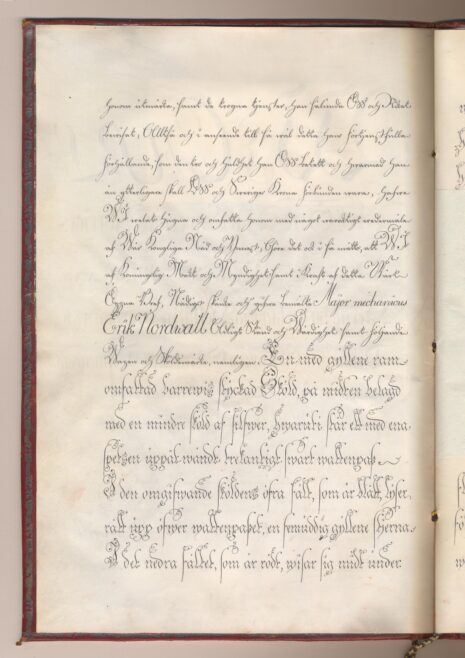 honom ålmände, samt de trogne tjenster, han sålunde Oss och Riket
bevisat, Alltså och i anseende till så wäl detta hans förtjenstfulla
förhållande, som den tro och huldhet han Oss betett och hädanefter han
än ytterligare skall Oss och Sveriges Krona förbunden wara, hafwe
WI welat hugna och omfatta honom med något wärdeligt wedermäle
af Wår Konglige Nåd och Ynnest; Giöre det ock i så måtto, att WI
af Konungslig Makt och Myndighet samt i Kraft af detta Wårt
Öppna Bref, Nådigst skänke och gifwe bemälte Major mechanicus
Erik Nordwall Adeligt Stånd och Wärdighet samt följande
Wapen och Sköldemärke, nemligen: En med gyllene ram
omfattad barrewis styckad Sköld, på midten belagd
med en mindre sköld af silfwer, hwaruti står ett med ena
spetsen uppåt wändt trekantigt swart wattenpass.
I den omgifwande sköldens öfra fält, som är blått, lyser,
rätt upp öfwer wattenpasset, en sexuddig gyllene stjerna.
I det nedra fältet, som är rödt, wisar sig midt under